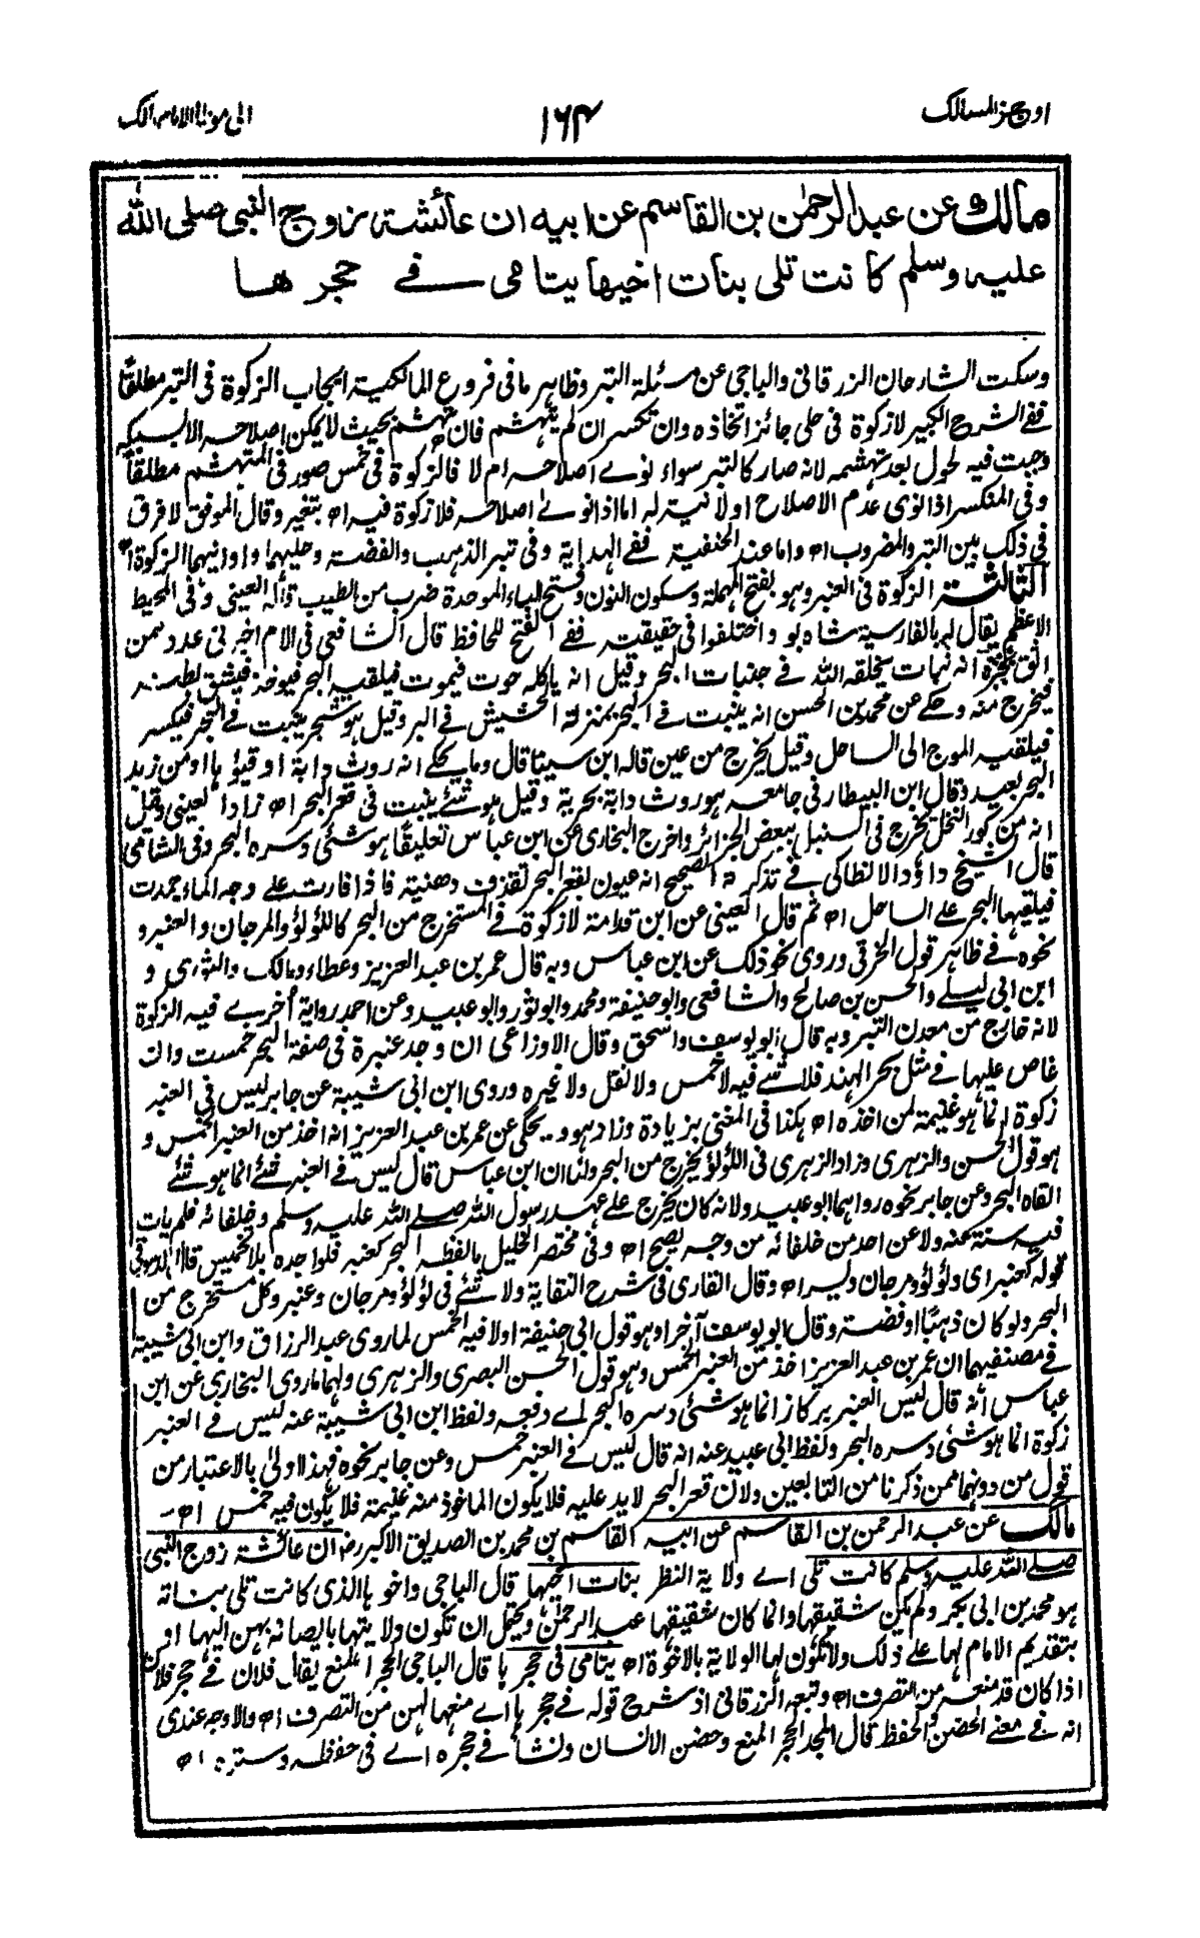 اوجز المسالك
١٦٤
الى موطا الامام مالك
مالك عن عبد الرحمٰن بن القاسم عن ابيه ان عائشة زوج النبى صلى الله
عليه وسلم كانت تلى بنات اخيها يتامى فے حجرها
وسكت الشارحان الزرقانى والباجى عن مسئلة التبر وظاهر ما فى فروع المالكية ايجاب الزكوة فى التبر مطلقًا
ففے الشرح الكبير لا زكوة فى حلى جائز اتخاذه وان تكسر ان لم يتهشم فان تهشم بحيث لا يمكن اصلاحه الا بسبكه
وجبت فيه لحول بعد تهشمه لانه صار كالتبر سواء نوے اصلاحه ام لا فالزكوة فى خمس صور فى المتهشم مطلقًا
وفى المنكسر اذا نوى عدم الاصلاح او لا نية له اما اذا نوے اصلاحه فلا زكوة فيه اه بتغير وقال الموفق لا فرق
فى ذلك بين التبر والمضروب اه واما عند الحنفية ففے الهداية وفى تبر الذهب والفضة وحليهما واوانيهما الزكوة اه
الثالثة الزكوة فى العنبر وهو بفتح المهملة وسكون النون وفتح الباء الموحدة ضرب من الطيب قاله العينى وفى المحيط
الاعظم يقال له بالفارسية شاه بو واختلفوا فى حقيقته ففے الفتح للحافظ قال الشافعى فى الام اخبرنى عدد ممن
اثق بخبره انه نبات يخلقه الله فے جنبات البحر وقيل انه ياكله حوت فيموت فيلقيه البحر فيوخذ فيشق بطنه
فيخرج منه وحكے عن محمد بن الحسن انه ينبت فے البحر بمنزلة الحشيش فے البر وقيل هو شجر ينبت فے البحر فيكسر
فيلقيه الموج الى الساحل وقيل يخرج من عين قاله ابن سينا قال وما يحكے انه روث دابة او قيؤها او من زبد
البحر بعيد وقال ابن البيطار فى جامعه هو روث دابة بحرية وقيل هو شئے ينبت فى قعر البحر اه زاد العينى وقيل
انه من كور النحل تخرج فى السنبل ببعض الجزائر واخرج البخارى عن ابن عباس تعليقًا هو شئى دسره البحر وفى الشامى
قال الشيخ داؤد الانطاكى فے تذكرته الصحيح انه عيون بقعر البحر تقذف دهنية فاذا فارت علے وجه الماء جمدت
فيلقيها البحر علے الساحل اه ثم قال العينى عن ابن قدامة لا زكوة فے المستخرج من البحر كاللؤلؤ والمرجان والعنبر و
نحوه فے ظاهر قول الخرقى وروى نحو ذلك عن ابن عباس وبه قال عمر بن عبد العزيز وعطاء ومالك والثورى و
ابن ابى ليلے والحسن بن صالح والشافعى وابو حنيفة ومحمد وابو ثور وابو عبيد وعن احمد رواية اخرے فيه الزكوة
لانه خارج من معدن التبر وبه قال ابو يوسف واسحق وقال الاوزاعى ان وجد عنبرة فى ضفة البحر خمست وان
غاص عليها فے مثل بحر الهند فلا شئے فيه لا خمس ولا نفل ولا غيره وروى ابن ابى شيبة عن جابر ليس فى العنبر
زكوة انما هو غنيمة لمن اخذه اه هكذا فى المغنى بزيادة وزاد هو ويحكى عن عمر بن عبد العزيز انه اخذ من العنبر الخمس و
هو قول الحسن والزهرى وزاد الزهرى فى اللؤلؤ يخرج من البحر ولنا ان ابن عباس قال ليس فے العنبر شئے انما هو شئے
القاه البحر وعن جابر نحوه رواهما ابو عبيد ولانه كان يخرج علے عهد رسول الله صلے الله عليه وسلم وخلفائه فلم يات
فيه سنة عنه ولا عن احد من خلفائه من وجه يصح اه وفى مختصر الخليل ما لفظه البحر كعنبر فلواجده بلا تخميس قال الدسوقى
قوله كعنبر اى ولؤلؤ ومرجان ويسر اه وقال القارى فى شرح النقاية ولا شئے فى لؤلؤ ومرجان وعنبر وكل مستخرج من
البحر ولو كان ذهبًا او فضة وقال ابو يوسف آخرا وهو قول ابى حنيفة اولا فيه الخمس لما روى عبد الرزاق وابن ابى شيبة
فے مصنفيهما ان عمر بن عبد العزيز اخذ من العنبر الخمس وهو قول الحسن البصرى والزهرى ولهما ما روى البخارى عن ابن
عباس انه قال ليس العنبر بركاز انما هو شئى دسره البحر اے دفعه ولفظ ابن ابى شيبة عنه ليس فے العنبر
زكوة انما هو شئى دسره البحر ولفظ ابى عبيد عنه انه قال ليس فے العنبر خمس وعن جابر نحوه فهذا اولى بالاعتبار من
قول من دونهما ممن ذكرنا من التابعين ولان قعر البحر لا يد عليه فلا يكون الماخوذ منه غنيمة فلا يكون فيه خمس اه -
مالك عن عبد الرحمن بن القاسم عن ابيه القاسم بن محمد بن الصديق الاكبر رض ان عائشة زوج النبى
صلے الله عليه وسلم كانت تلى اے ولاية النظر بنات اخيها قال الباجى واخوها الذى كانت تلى بناته
هو محمد بن ابى بكر ولم يكن شقيقها وانما كان شقيقها عبد الرحمٰن ويحتمل ان تكون ولايتها بالايصاء بهن اليها او
بتقديم الامام لها علے ذلك ولا تكون لها الولاية بالاخوة اه يتامى فى حجرها قال الباجى الحجر المنع يقال فلان فے حجر فلان
اذا كان قد منعه من التصرف اه وتبعه الزرقانى اذ شرح قوله فے حجرها اے منعها لهن من التصرف اه والاوجه عندى
انه فے معنے الحضن والحفظ قال المجد الحجر المنع وحضن الانسان ونشأ فے حجره اے فى حفظه وستره اه